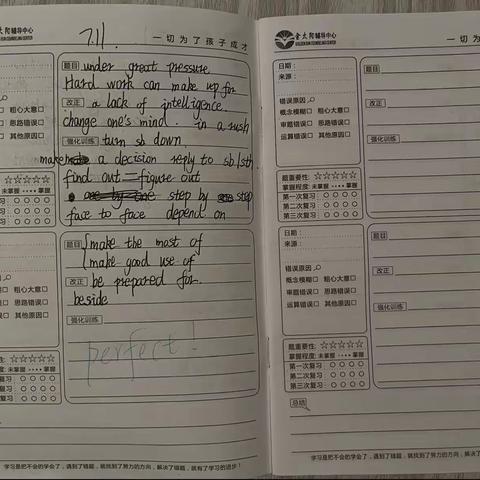 7.11.
一切为了孩子成才
金太阳辅导中心
GOLDEN SUN COUNSELING CENTER
题目 under great pressure
Hard work can make up for
改正 a lack of intelligence.
change one's mind. in a rush
强化训练 turn sb down.
make a decision reply to sb/sth
find out — figure out
step by step
face to face depend on
粗心大意□
思路错误□
其他原因□
题目 make the most of
make good use of
改正 be prepared for
beside
强化训练
perfect!
粗心大意□
思路错误□
其他原因□
学习是把不会的学会了，遇到了错题，就找到了努力的方向，解决了错题，就有了学习的进步！
金太阳辅导中心
GOLDEN SUN COUNSELING CENTER
一切为
日期：
来源：
错误原因
概念模糊□ 粗心大意□
审题错误□ 思路错误□
运算错误□ 其他原因□
题重要性：☆☆☆☆☆
掌握程度：未掌握 •••• 掌握
第一次复习：○○○○
第二次复习：○○○○
第三次复习：○○○○
题目
改正
强化训练
日期：
来源：
错误原因
概念模糊□ 粗心大意□
审题错误□ 思路错误□
运算错误□ 其他原因□
题重要性：☆☆☆☆☆
掌握程度：未掌握 •••• 掌握
第一次复习：○○○○
第二次复习：○○○○
第三次复习：○○○○
题目
改正
强化训练
总结
学习是把不会的学会了，遇到了错题，就找到了努力的方向，解决了